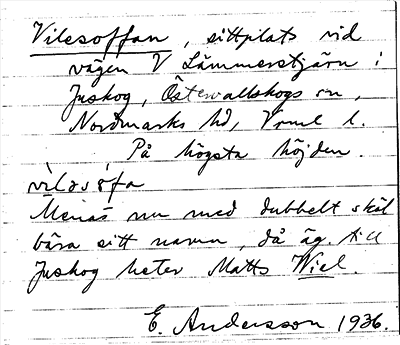 Vilesoffan, sittplats vid
vägen V Lämmerstjärn i
Juskog, Östervallskogs sn,
Nordmarks hd, Vrml l.
På högsta höjden.
vìləsòfa
Menas nu med dubbelt skäl
bära sitt namn, då äg. till
Juskog heter Matts Wiel.
E. Andersson 1936.